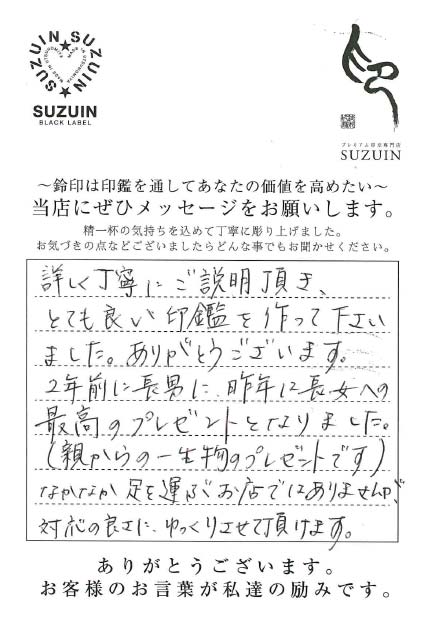 SUZUIN★SUZUIN★
SUZUIN
BLACK LABEL
プレミアム印章専門店
SUZUIN
～鈴印は印鑑を通してあなたの価値を高めたい～
当店にぜひメッセージをお願いします。
精一杯の気持ちを込めて丁寧に彫り上げました。
お気づきの点などございましたらどんな事でもお聞かせください。
詳しく丁寧にご説明頂き、
とても良い印鑑を作って下さい
ました。ありがとうございます。
2年前に長男に、昨年に長女への
最高のプレゼントとなりました。
(親からの一生物のプレゼントです)
なかなか足を運ぶお店ではありませんが、
対応の良さに、ゆっくりさせて頂けます。
ありがとうございます。
お客様のお言葉が私達の励みです。